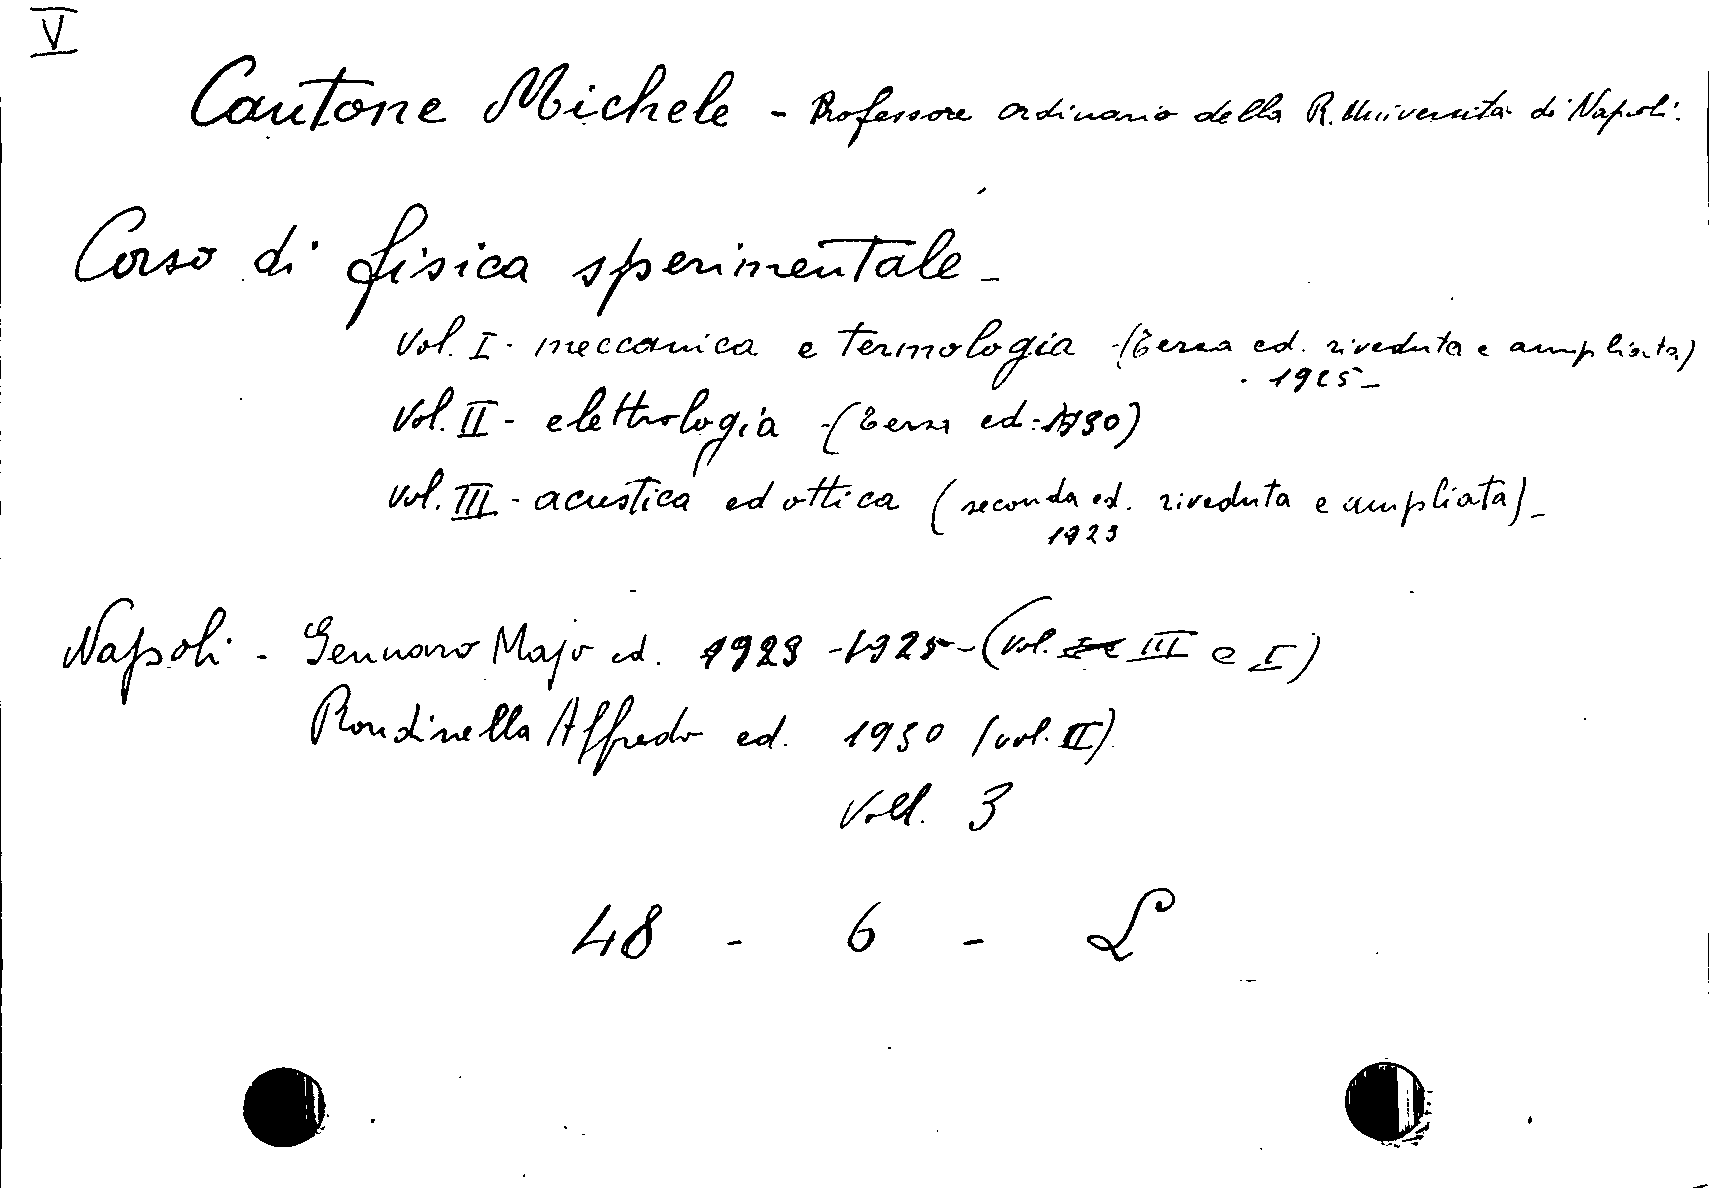 V
Cantone Michele - Professore ordinario della R. Università di Napoli.
Corso di fisica sperimentale -
Vol. I - meccanica e termologia - (terza ed. riveduta e ampliata)
1925 -
Vol. II - elettrologia - (terza ed. 1930)
vol. III - acustica ed ottica (seconda ed. riveduta e ampliata) -
1923
Napoli - Gennaro Majo ed. 1923 - 1925 - (vol. III e I)
Rondinella Alfredo ed. 1930 (vol. II).
Voll. 3
48 - 6 - L